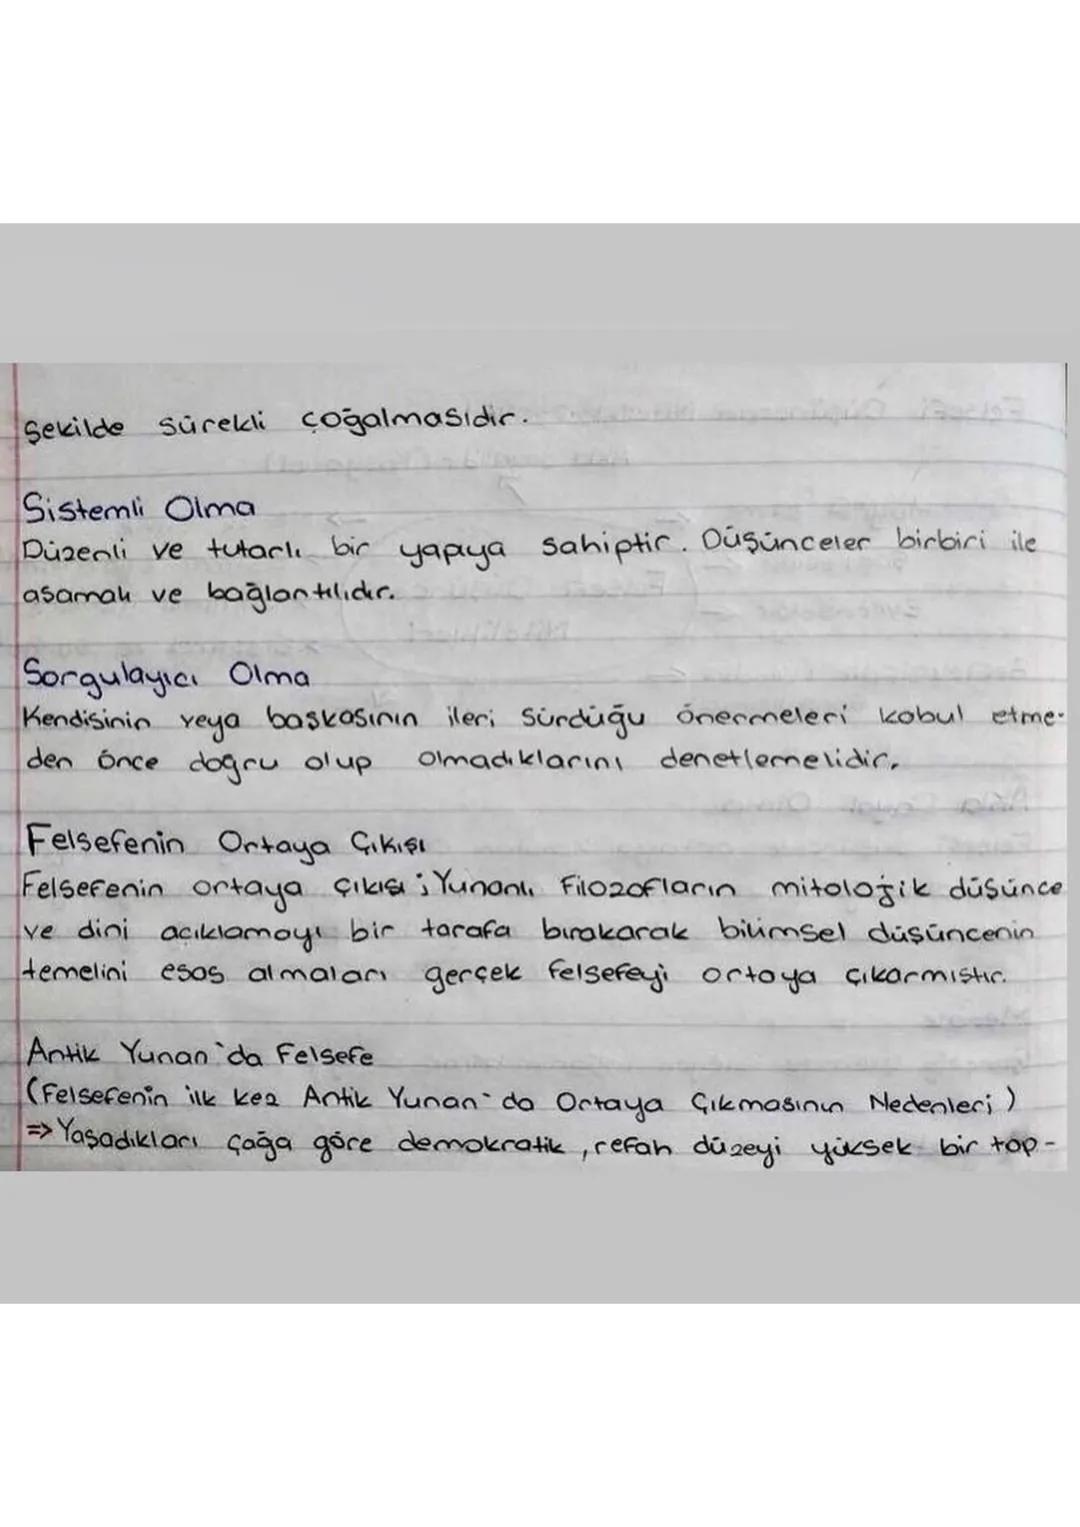 şekilde sürekli çoğalmasıdır.
Sistemli Olma
Düzenli ve tutarlı bir yapıya sahiptir. Düşünceler birbiri ile
aşamalı ve bağlantılıdır.
Sorgulayıcı Olma
Kendisinin veya başkasının ileri sürdüğü önermeleri kabul etme-
den önce doğru olup olmadıklarını denetlemelidir.
Felsefenin Ortaya Çıkışı
Felsefenin ortaya çıkışı; Yunanlı filozofların mitolojik düşünce
ve dini açıklamayı bir tarafa bırakarak bilimsel düşüncenin
temelini esas almaları gerçek felsefeyi ortaya çıkarmıştır.
Antik Yunan'da Felsefe
(Felsefenin ilk kez Antik Yunan'da Ortaya Çıkmasının Nedenleri)
=> Yaşadıkları çağa göre demokratik, refah düzeyi yüksek bir top-